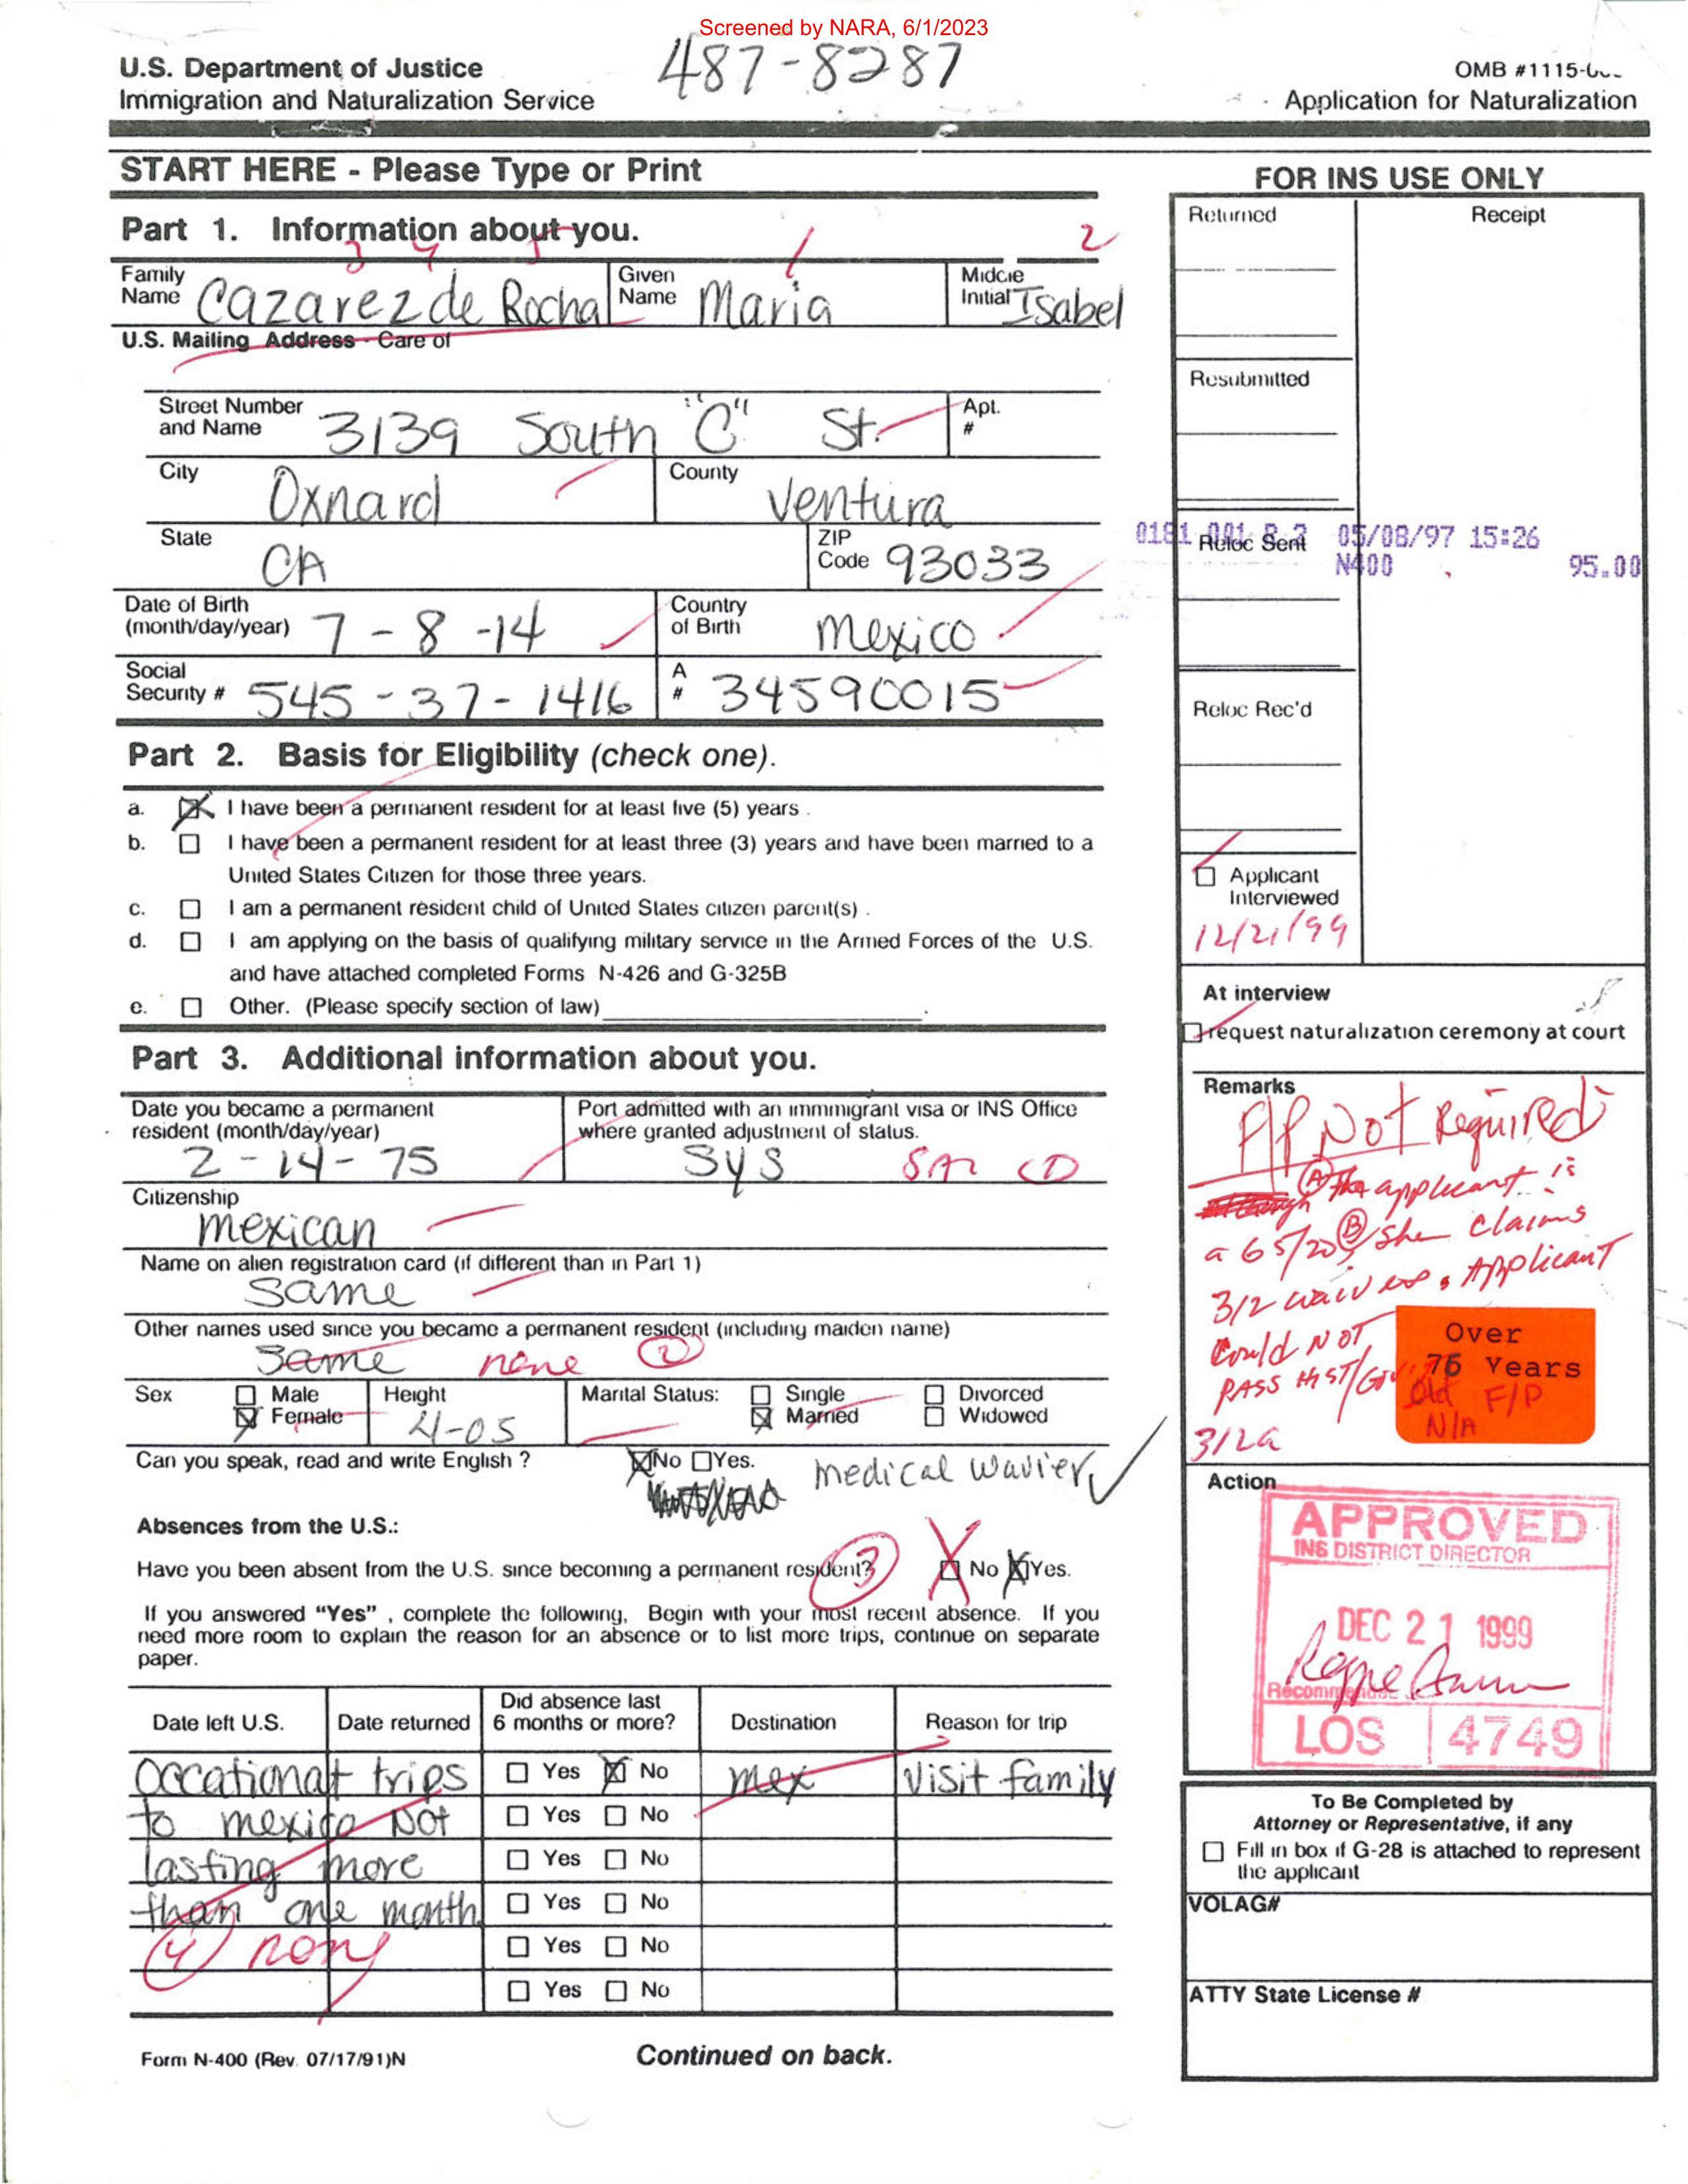 Screened by NARA, 6/1/2023
487-8287
U.S. Department of Justice
Immigration and Naturalization Service
OMB #1115-0
Application for Naturalization
START HERE - Please Type or Print
Part 1. Information about you.
3 4 5 1 2
Family Name Cazarez de Rocha Given Name Maria Middle Initial Isabel
U.S. Mailing Address - Care of
Street Number and Name 3139 South "C" St. Apt. #
City Oxnard County Ventura
State CA ZIP Code 93033
Date of Birth (month/day/year) 7-8-14 Country of Birth Mexico
Social Security # 545-37-1416 A # 34590015
Part 2. Basis for Eligibility (check one).
a. I have been a permanent resident for at least five (5) years .
b. I have been a permanent resident for at least three (3) years and have been married to a
United States Citizen for those three years.
c. I am a permanent resident child of United States citizen parent(s) .
d. I am applying on the basis of qualifying military service in the Armed Forces of the U.S.
and have attached completed Forms N-426 and G-325B
e. Other. (Please specify section of law)
Part 3. Additional information about you.
Date you became a permanent resident (month/day/year) 2-14-75
Port admitted with an immmigrant visa or INS Office
where granted adjustment of status.
SYS 1
Citizenship
Mexican
Name on alien registration card (if different than in Part 1)
Same
Other names used since you became a permanent resident (including maiden name)
Same none 2
Sex Male Female Height 4-05 Marital Status: Single Married Divorced Widowed
Can you speak, read and write English ? No Yes. medical wavier
Absences from the U.S.:
Have you been absent from the U.S. since becoming a permanent resident? 3 No Yes.
If you answered "Yes" , complete the following, Begin with your most recent absence. If you
need more room to explain the reason for an absence or to list more trips, continue on separate
paper.
Date left U.S. Date returned Did absence last 6 months or more? Destination Reason for trip
Occational trips Yes No mex Visit family
to mexico Not Yes No
lasting more Yes No
than one month Yes No
4 none Yes No
Yes No
Form N-400 (Rev. 07/17/91)N
Continued on back.
FOR INS USE ONLY
Returned Receipt
Resubmitted
0181 001 05/08/97 15:26
Reloc Sent
N400 95.00
Reloc Rec'd
Applicant
Interviewed
12/21/99
At interview
request naturalization ceremony at court
Remarks
F/P Not Required
A The applicant is
a 65/20 B She claims
312 waiver. Applicant
Could NOT
PASS HIST/Gov
312a
Over
76 Years
Old F/P
N/A
Action
APPROVED
INS DISTRICT DIRECTOR
DEC 21 1999
LOS 4749
To Be Completed by
Attorney or Representative, if any
Fill in box if G-28 is attached to represent
the applicant
VOLAG#
ATTY State License #